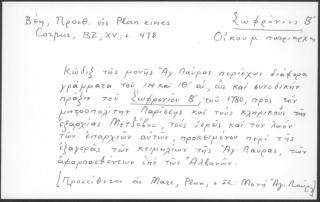 Βέη, Προσθ. εἰς Plan eines
Corpus, BZ, XV, σ. 478
Σωφρόνιος Β΄
Οἰκουμ. πατριάρχης
Κῶδιξ τῆς μονῆς Ἁγ. Λαύρας περιέχων διάφορα
γράμματα τοῦ ΙΗ καὶ ΙΘ΄ αἰ., ὡς καὶ συνοδικὴν
πρᾶξιν τοῦ Σωφρονίου Β΄, τοῦ 1780, πρὸς τὸν
μητροπολίτην Λαρίσσης καὶ τοὺς κληρικοὺς τῆς
ἐξαρχίας Μετζόβου, τοὺς ἱερεῖς καὶ τὸν λαὸν
τῶν ἐπαρχιῶν αὐτῶν, προκειμένου περὶ τῆς
ἐξαγορᾶς τῶν κειμηλίων τῆς Ἁγ. Λαύρας, τῶν
ἁφαρπασθέντων ὑπὸ τῶν Ἀλβανῶν.
[Προστίθεται εἰς Marc, Plan, σ. 52: Μονὴ Ἁγ. Λαύρας]